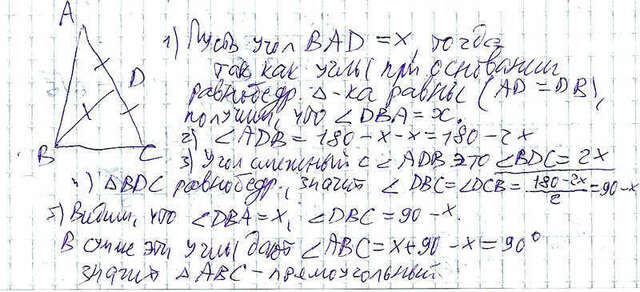 A
D
B
C
1) Пусть угол BAD = x, тогда
так как углы при основании
равнобедр. Δ-ка равны (AD = DB),
получим, что ∠DBA = x.
2) ∠ADB = 180 - x - x = 180 - 2x
3) Угол смежный с ∠ADB это ∠BDC = 2x
4) ΔBDC равнобедр., значит ∠DBC = ∠DCB = (180 - 2x)/2 = 90 - x
5) Видим, что ∠DBA = x, ∠DBC = 90 - x.
В сумме эти углы дают ∠ABC = x + 90 - x = 90°
значит ΔABC - прямоугольный.